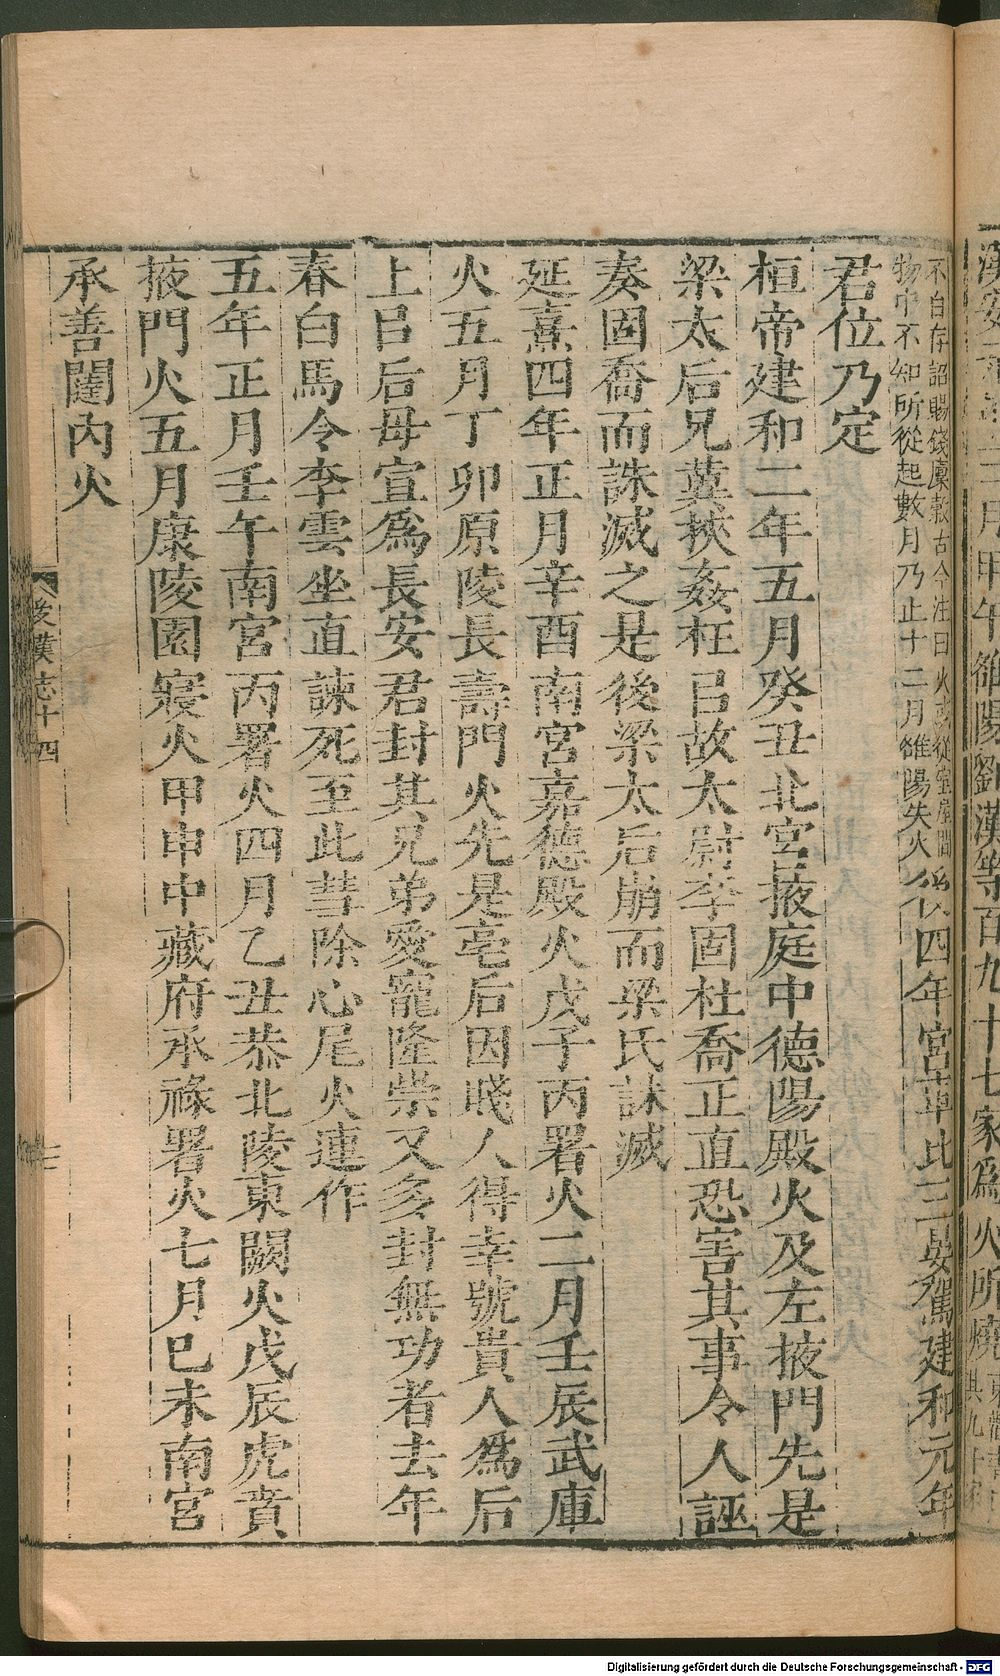 漢安二年 三月甲午雒陽劉漢等百九十七家為火所燒
不自存詔賜錢廩穀古今注曰火或從室屋間
物中不知所從起數月乃止十二月雒陽失火
後四年宮車比三晏駕建和元年
君位乃定
桓帝建和二年五月癸丑北宮掖庭中德陽殿火及左掖門先是
梁太后兄冀挾姦枉㠯故太尉李固杜喬正直恐害其事令人誣
奏固喬而誅滅之是後梁太后崩而梁氏誅滅
延熹四年正月辛酉南宮嘉德殿火戊子丙署火二月壬辰武庫
火五月丁卯原陵長壽門火先是亳后因賤人得幸號貴人為后
上㠯后母宣為長安君封其兄弟愛寵隆崇又多封無功者去年
春白馬令李雲坐直諫死至此彗除心尾火連作
五年正月壬午南宮丙署火四月乙丑恭北陵東闕火戊辰虎賁
掖門火五月康陵園寢火甲申中藏府承祿署火七月巳未南宮
承善闥內火
後漢志十四